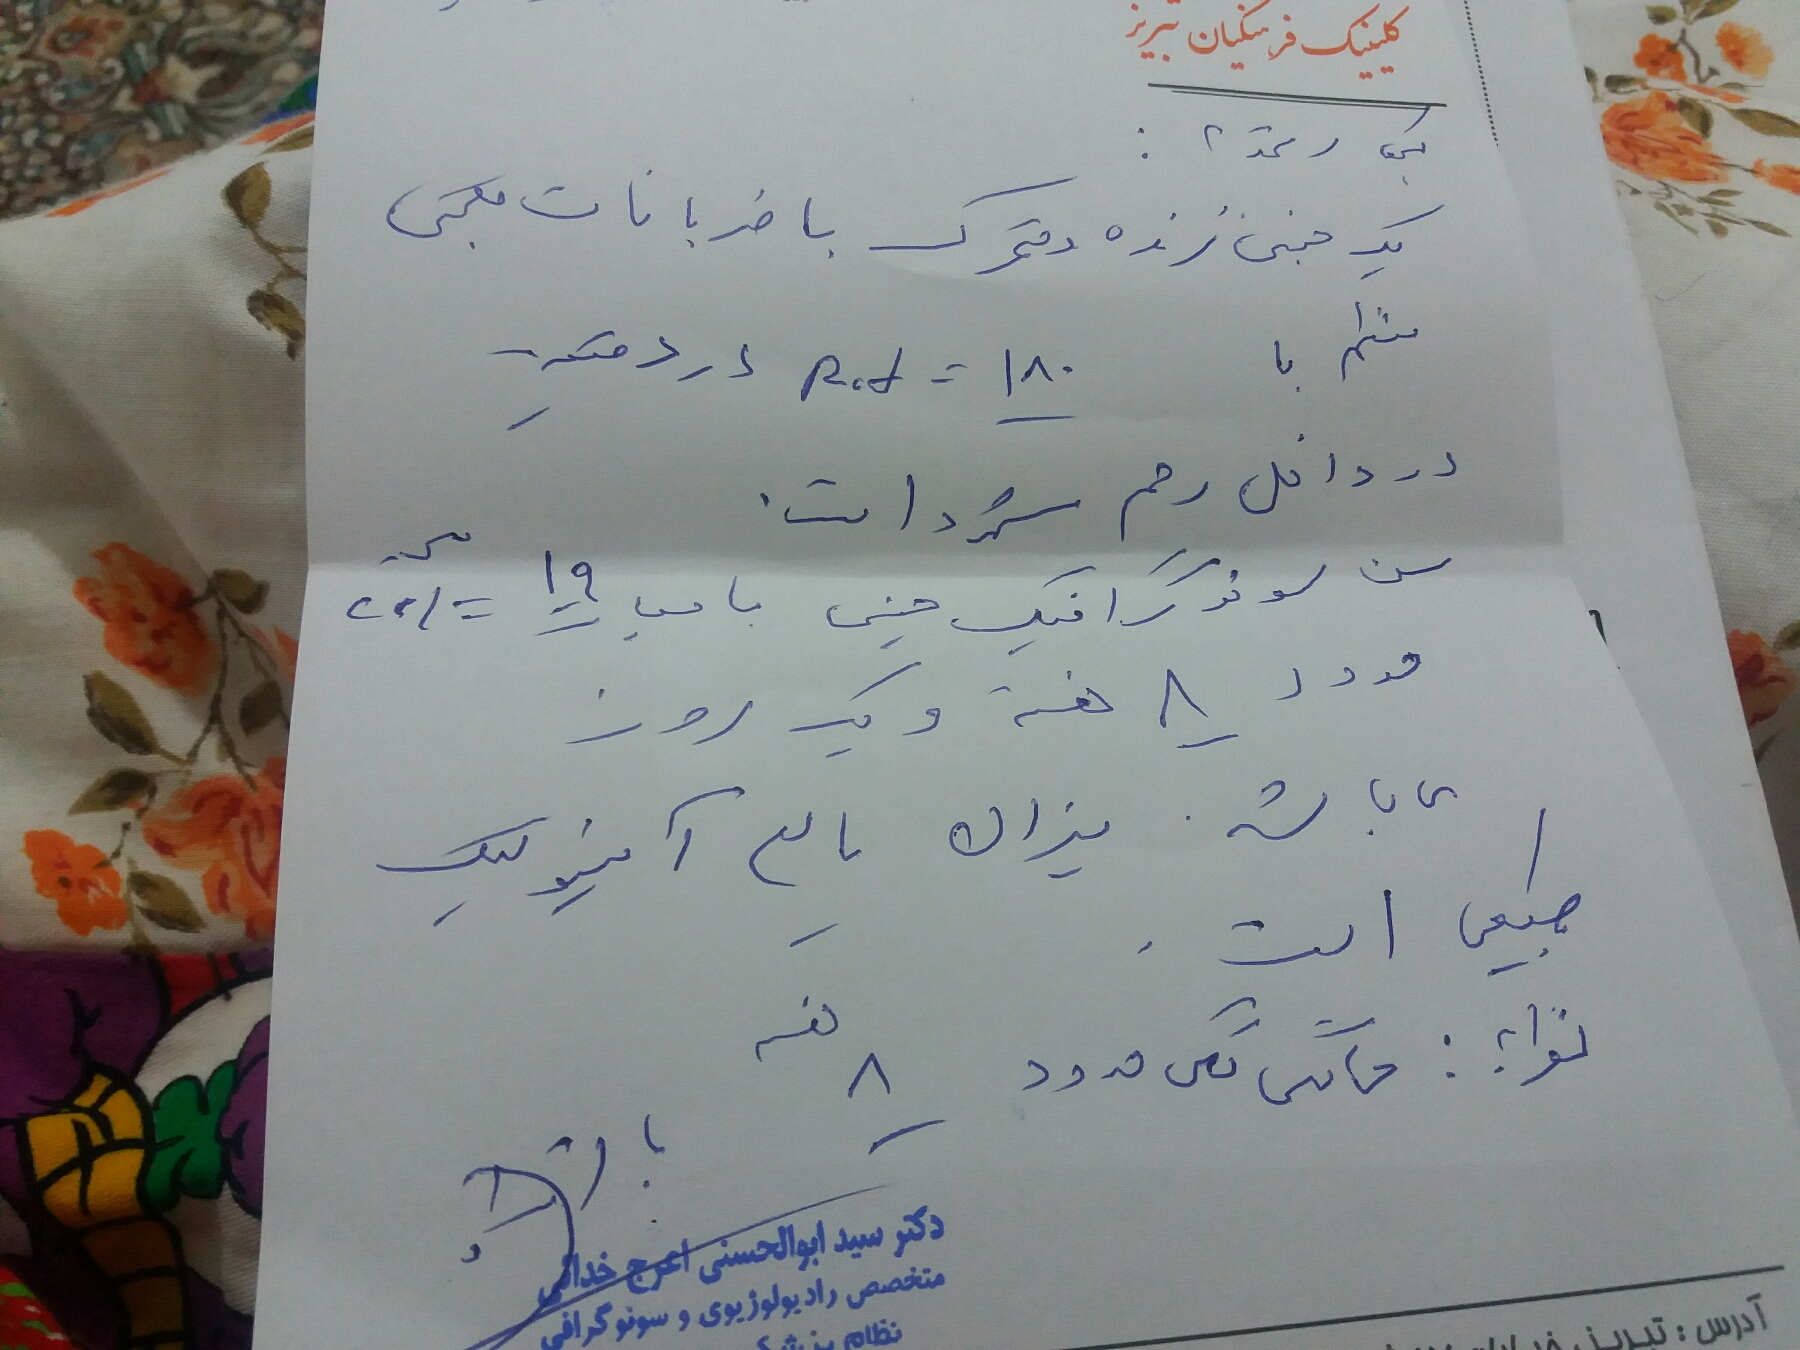 کلینیک فرهنگیان تبریز
یک جنین زنده و متحرک با ضربانات قلبی
منظم با Rate = ۱۸۰ در دقیقه
در داخل رحم مشهود است.
سن سونوگرافیک جنین با میانگین ۱۹ = CRL
حدود ۸ هفته و یک روز
می باشد. میزان مایع آمنیوتیک
طبیعی است.
نظریه: حاملگی تکی حدود ۸ هفته
با تشکر
دکتر سید ابوالحسنی اعرج خدائی
متخصص رادیولوژیوی و سونوگرافی
نظام پزشکی
آدرس : تبریز